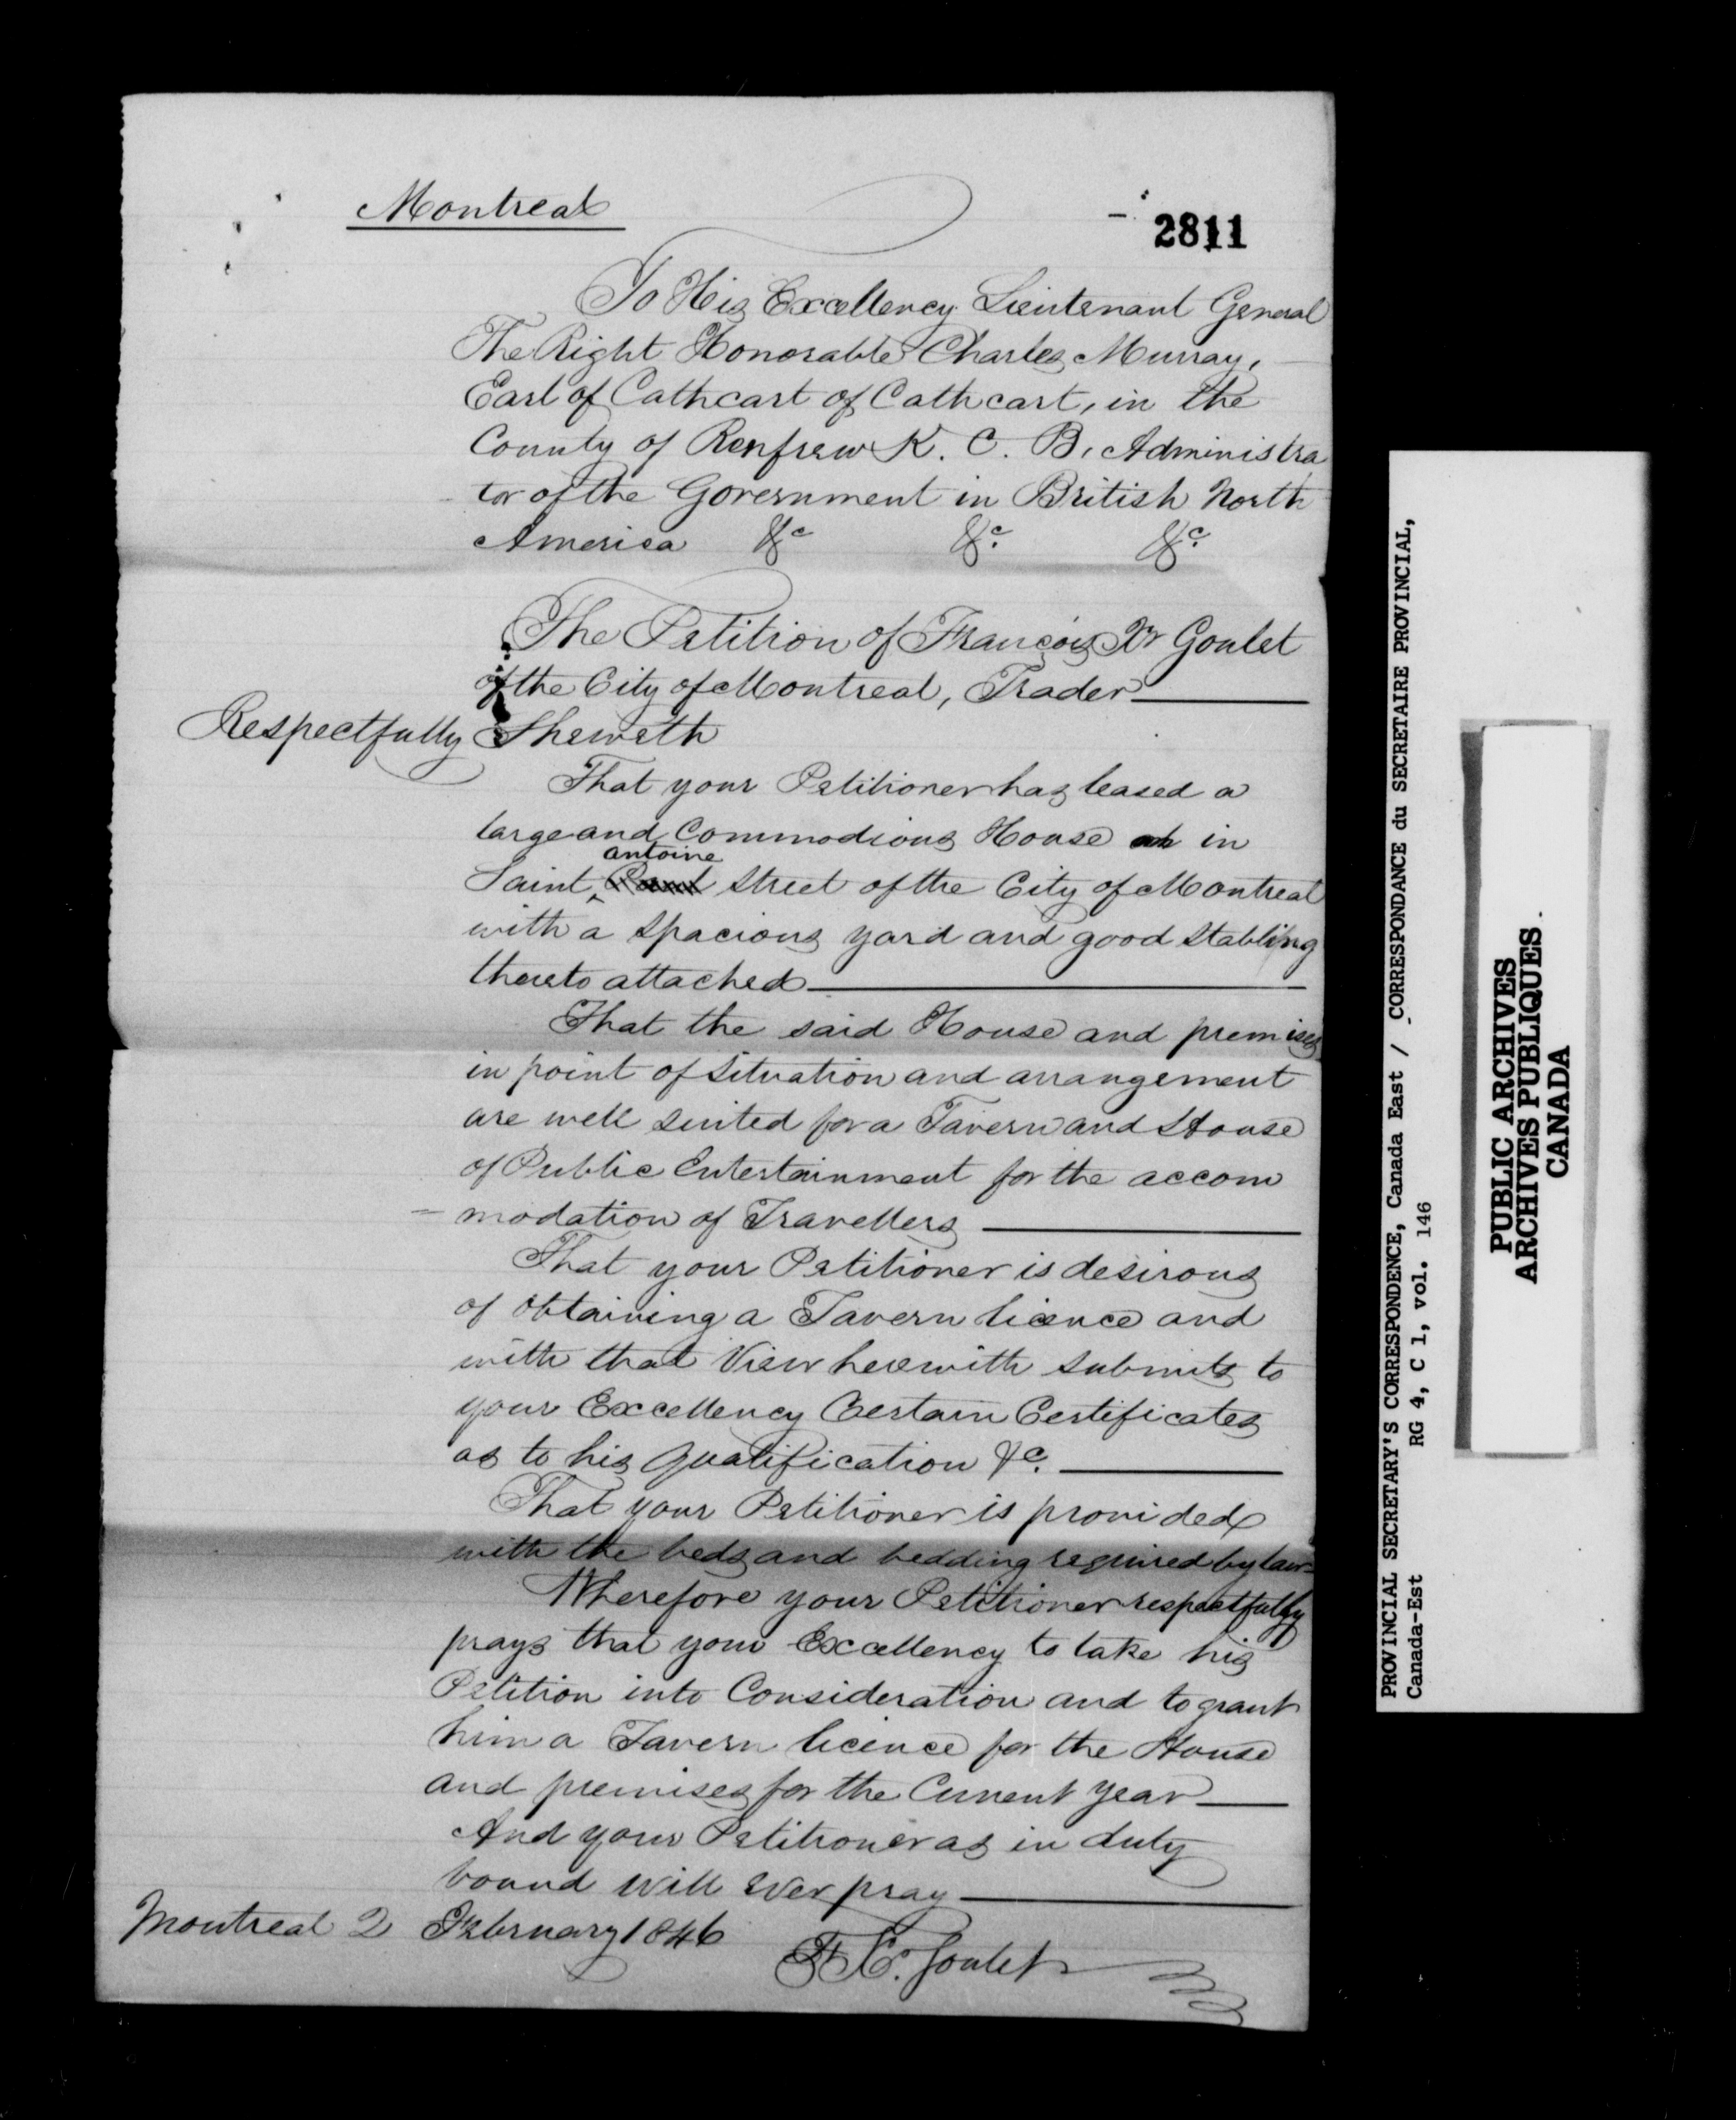 Montreal
2811
To His Excellency Lieutenant General
The Right Honorable Charles Murray,
Earl of Cathcart of Cathcart, in the
County of Renfrew K. C. B. Administra
tor of the Government in British North
America &c &c. &c.
The Petition of François Xr Goulet
of the City of Montreal, Trader
Respectfully Sheweth
That your Petitioner has leased a
large and Commodious House in
antoine
Saint street of the City of Montreal
with a spacious yard and good stabling
thereto attached
That the said House and premises
in point of situation and arrangement
are well suited for a Tavern and House
of Public Entertainment for the accom
= modation of Travellers
That your Petitioner is desirous
of obtaining a Tavern licence and
with that View herewith submits to
your Excellency Certain Certificates
as to his qualification &c.
That your Petitioner is provided
with the beds and bedding required by law
Wherefore your Petitioner respectfully
prays that your Excellency to take his
Petition into Consideration and to grant
him a Tavern licence for the House
and premises for the Current year
And your Petitioner as in duty
bound will ever pray
Montreal 2 February 1846
F X. Goulet
PROVINCIAL SECRETARY'S CORRESPONDENCE, Canada East / CORRESPONDANCE du SECRETAIRE PROVINCIAL,
Canada-Est RG 4, C 1, vol. 146
PUBLIC ARCHIVES
ARCHIVES PUBLIQUES
CANADA